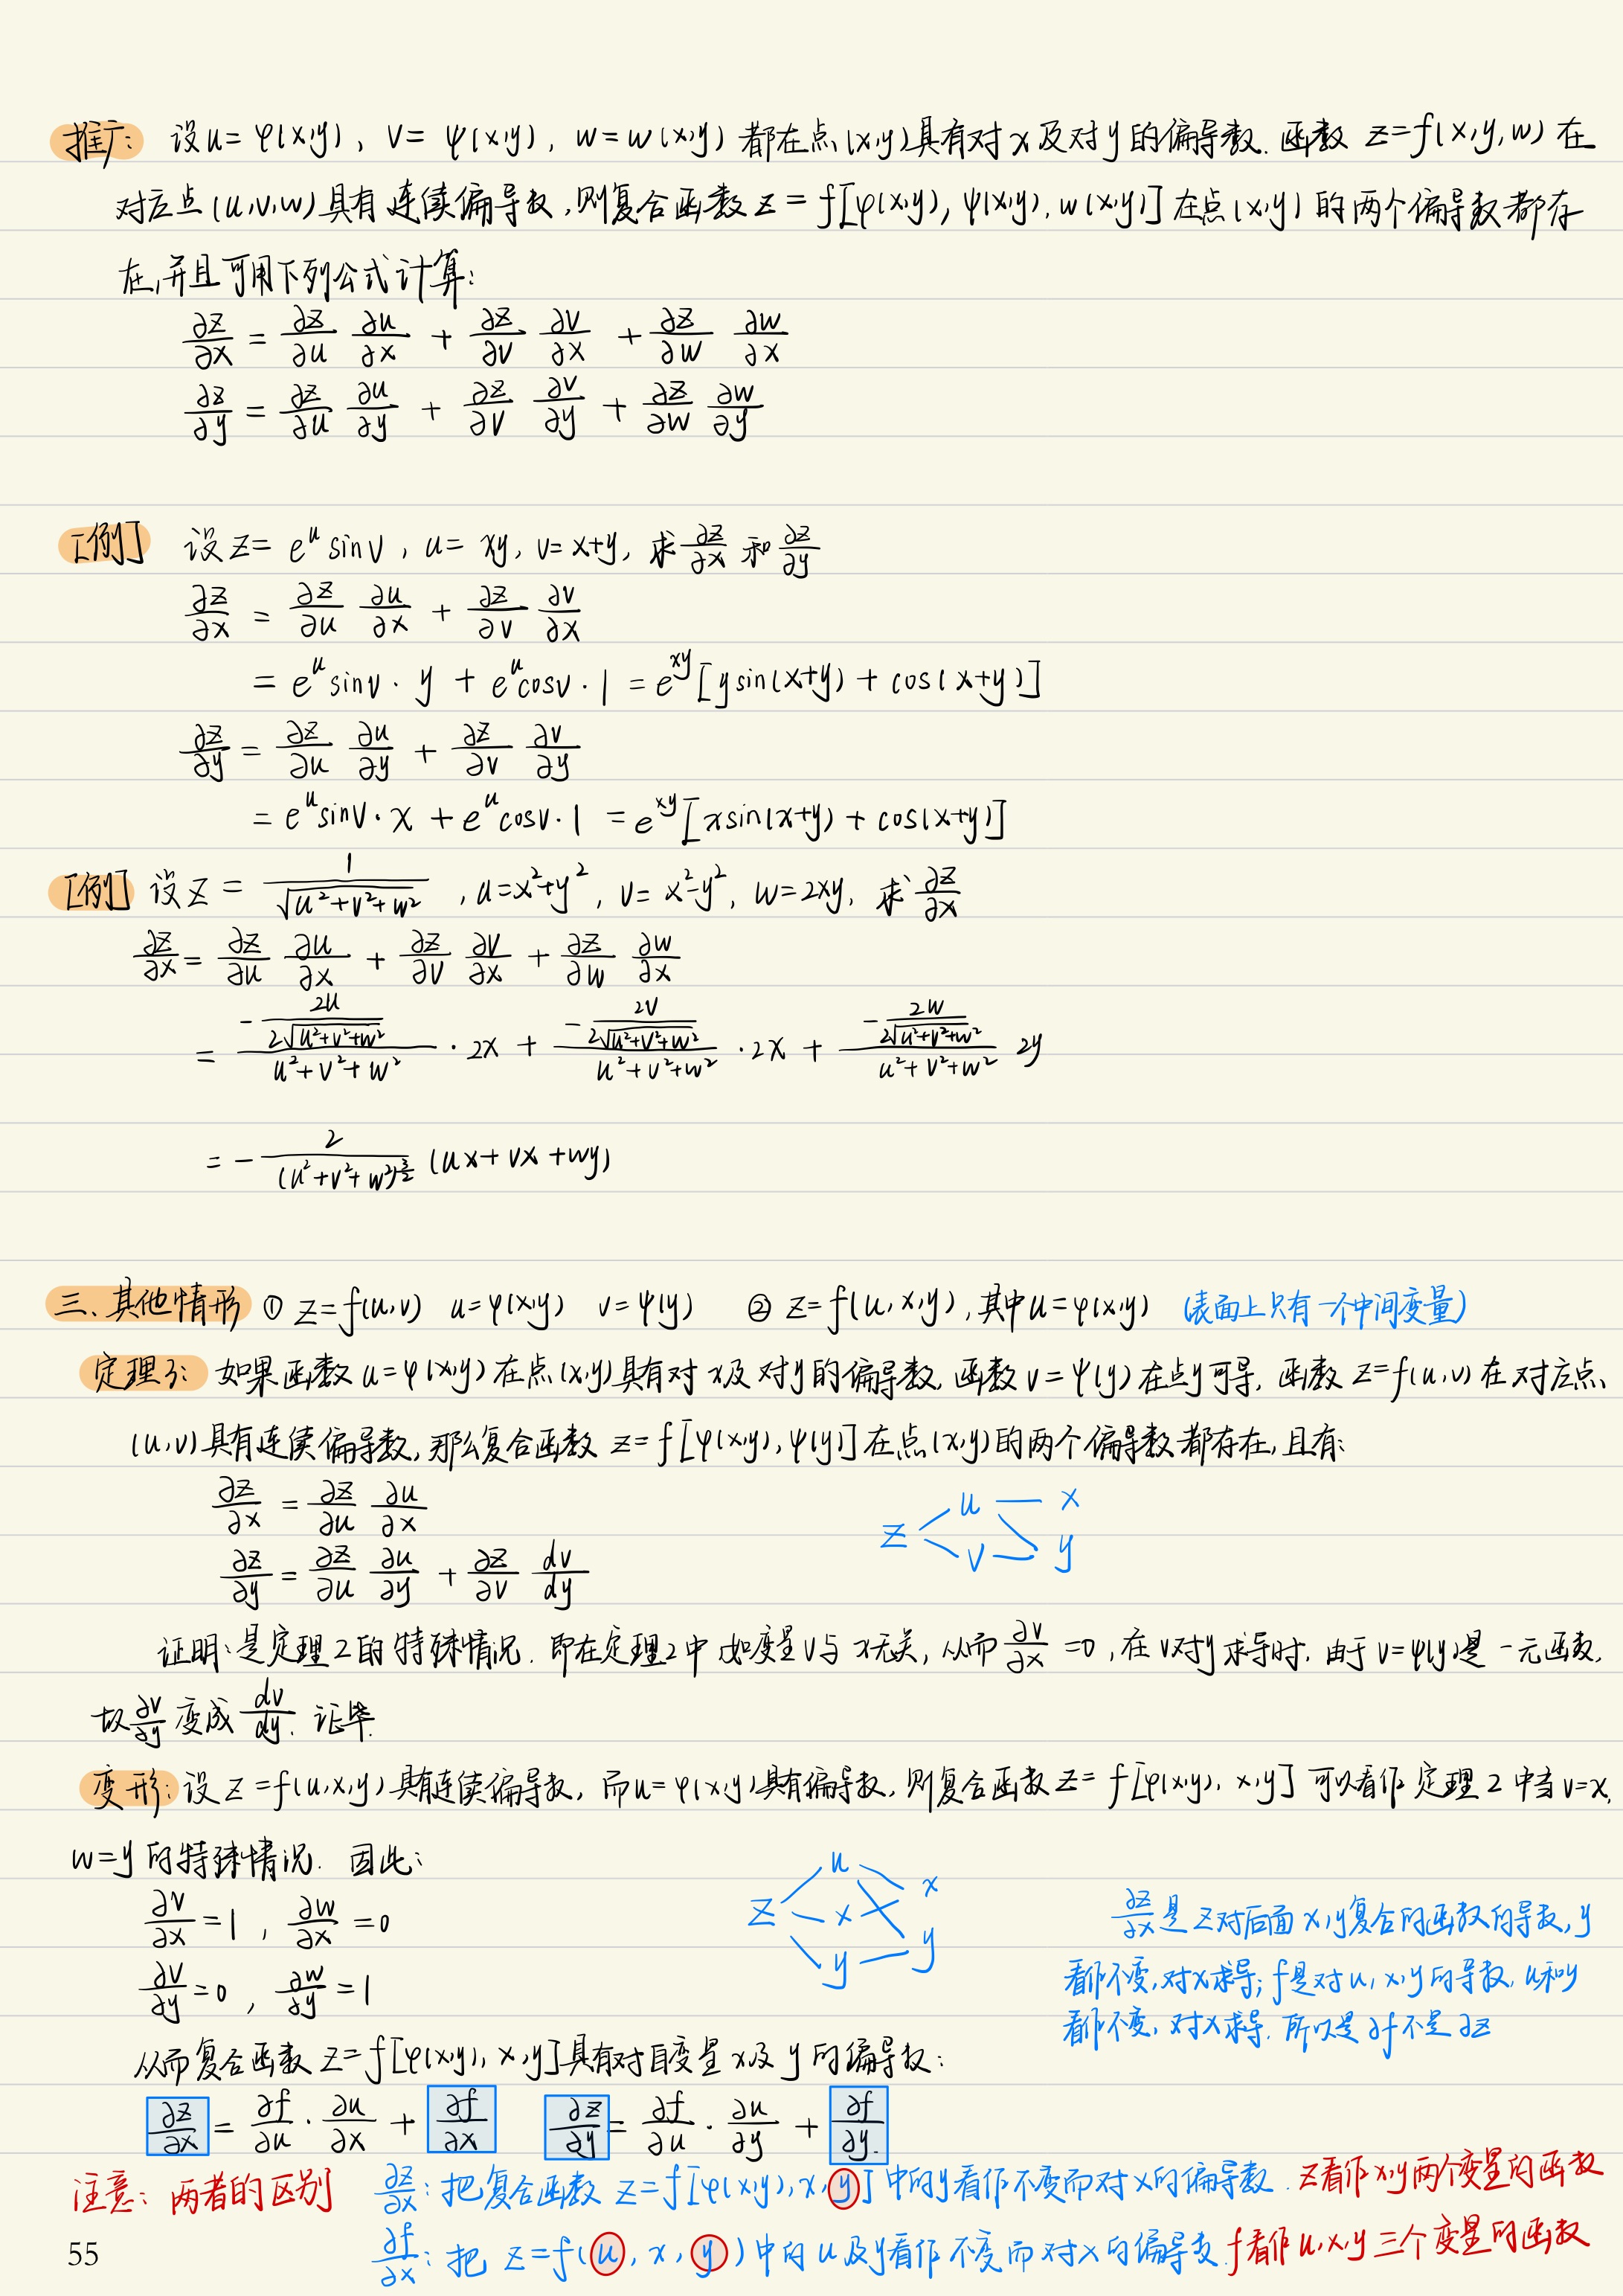 推广: 设u=φ(x,y), v=ψ(x,y), w=w(x,y) 都在点(x,y)具有对x及对y的偏导数. 函数 z=f(x,y,w) 在
对应点(u,v,w)具有连续偏导数,则复合函数z=f[φ(x,y), ψ(x,y), w(x,y)]在点(x,y)的两个偏导数都存
在,并且可用下列公式计算:
∂z/∂x = ∂z/∂u ∂u/∂x + ∂z/∂v ∂v/∂x + ∂z/∂w ∂w/∂x
∂z/∂y = ∂z/∂u ∂u/∂y + ∂z/∂v ∂v/∂y + ∂z/∂w ∂w/∂y
[例] 设z=e^u sinv, u=xy, v=x+y, 求∂z/∂x和∂z/∂y
∂z/∂x = ∂z/∂u ∂u/∂x + ∂z/∂v ∂v/∂x
= e^u sinv·y + e^u cosv·1 = e^xy[ysin(x+y)+cos(x+y)]
∂z/∂y = ∂z/∂u ∂u/∂y + ∂z/∂v ∂v/∂y
= e^u sinv·x + e^u cosv·1 = e^xy[xsin(x+y)+cos(x+y)]
[例] 设z = 1/√(u²+v²+w²), u=x²+y², v=x²-y², w=2xy, 求∂z/∂x
∂z/∂x = ∂z/∂u ∂u/∂x + ∂z/∂v ∂v/∂x + ∂z/∂w ∂w/∂x
= (-2u/(2√(u²+v²+w²)))/(u²+v²+w²)·2x + (-2v/(2√(u²+v²+w²)))/(u²+v²+w²)·2x + (-2w/(2√(u²+v²+w²)))/(u²+v²+w²) 2y
= -2/(u²+v²+w²)^(3/2) (ux+vx+wy)
三、其他情形 ① z=f(u,v) u=φ(x,y) v=ψ(y) ② z=f(u,x,y),其中u=φ(x,y) (表面上只有一个中间变量)
定理3: 如果函数u=φ(x,y)在点(x,y)具有对x及对y的偏导数,函数v=ψ(y)在点y可导,函数z=f(u,v)在对应点
(u,v)具有连续偏导数,那么复合函数z=f[φ(x,y),ψ(y)]在点(x,y)的两个偏导数都存在,且有:
∂z/∂x = ∂z/∂u ∂u/∂x
∂z/∂y = ∂z/∂u ∂u/∂y + ∂z/∂v dv/dy
z u x
v y
证明:是定理2的特殊情况. 即在定理2中 如变量v与x无关, 从而∂v/∂x=0, 在v对y求导时, 由于v=ψ(y)是一元函数,
故∂v/∂y变成dv/dy. 证毕.
变形:设z=f(u,x,y)具有连续偏导数, 而u=φ(x,y)具有偏导数, 则复合函数z=f[φ(x,y), x,y]可以看作定理2中当v=x,
w=y的特殊情况. 因此:
∂v/∂x=1, ∂w/∂x=0
∂v/∂y=0, ∂w/∂y=1
z u x
x
y y
∂z/∂x是z对后面x,y复合的函数的导数,y
看作不变,对x求导;f是对u,x,y的导数,u和y
看作不变,对x求导.所以是∂f不是∂z
从而复合函数z=f[φ(x,y), x,y]具有对自变量x及y的偏导数:
∂z/∂x = ∂f/∂u·∂u/∂x + ∂f/∂x ∂z/∂y = ∂f/∂u·∂u/∂y + ∂f/∂y.
注意: 两者的区别 ∂z/∂x: 把复合函数z=f[φ(x,y),x,y]中的y看作不变而对x的偏导数. z看作x,y两个变量的函数
∂f/∂x: 把 z=f(u,x,y)中的u及y看作不变而对x的偏导数. f看作u,x,y三个变量的函数
55